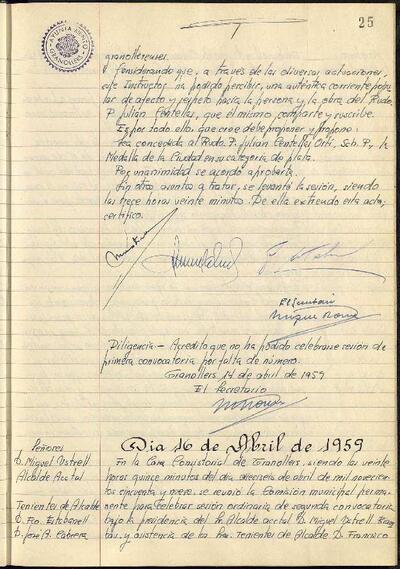 AYUNTAMIENTO
GRANOLLERS
25
granollerenses.
Considerando que, a través de las diversas actuaciones,
este Instructor ha podido percibir, una auténtica corriente popu-
lar de afecto y respeto hacia la persona y la obra del Rvdo.
P. Julián Centelles, que él mismo comparte y suscribe.
Es por todo ello, que cree debe proponer y propone:
Sea concedida al Rvdo. P. Julián Centelles Ortí, Sch. P., la
Medalla de la Ciudad en su categoría de plata.
Por unanimidad se acordó aprobarla.
Sin otros asuntos a tratar, se levantó la sesión, siendo
las trece horas veinte minutos. De ella extiendo esta acta,
certifico.
Diligencia.- Acredito que no ha podido celebrarse sesión de
primera convocatoria por falta de número.
Granollers 14 de abril de 1959
El Secretario
Señores
D. Miguel Ustrell
Alcalde Acctal
Tenientes de Alcalde
D. Fco. Estabanell
D. José A. Cabrera
Día 16 de Abril de 1959
En la Casa Consistorial de Granollers, siendo las veinte
horas quince minutos del día dieciséis de abril de mil novecien-
tos cincuenta y nueve, se reunió la Comisión municipal perma-
nente para celebrar sesión ordinaria de segunda convocatoria
bajo la presidencia del Sr. Alcalde acctal D. Miguel Ustrell
y asistencia de los Sres. Tenientes de Alcalde D. Francisco